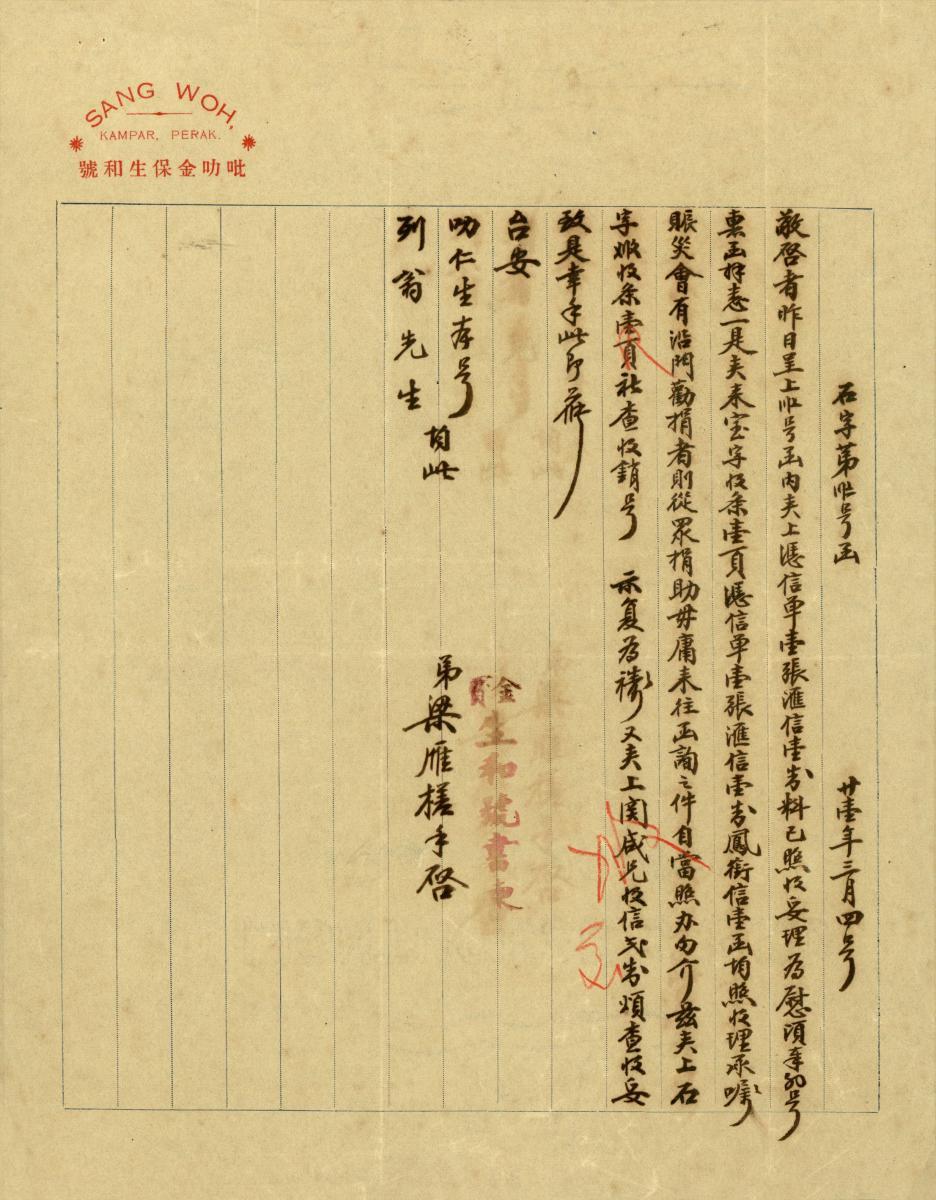 SANG WOH,
KAMPAR, PERAK.
吡叻金保生和號
石字第號函 廿壹年三月四号
敬啓者昨日呈上号函內夹上憑信单壹張滙信壹封料已照收妥理為慰頃奉号
惠函拜悉一是夹来宝字收条壹頁憑信单壹張滙信壹封鳳銜信壹函均照收理承嘱
賬災會有沿門勸捐者則從眾捐助毋庸来往函詢之件自當照办勿介兹夹上石
字收条壹頁社查收銷号 示复為禱又夹上関成兄收信弍封煩查收妥
致是幸手此即荷
台安
叻仁生存号
列翁先生 均此
金
生和號書柬
弟梁雁槎手啓